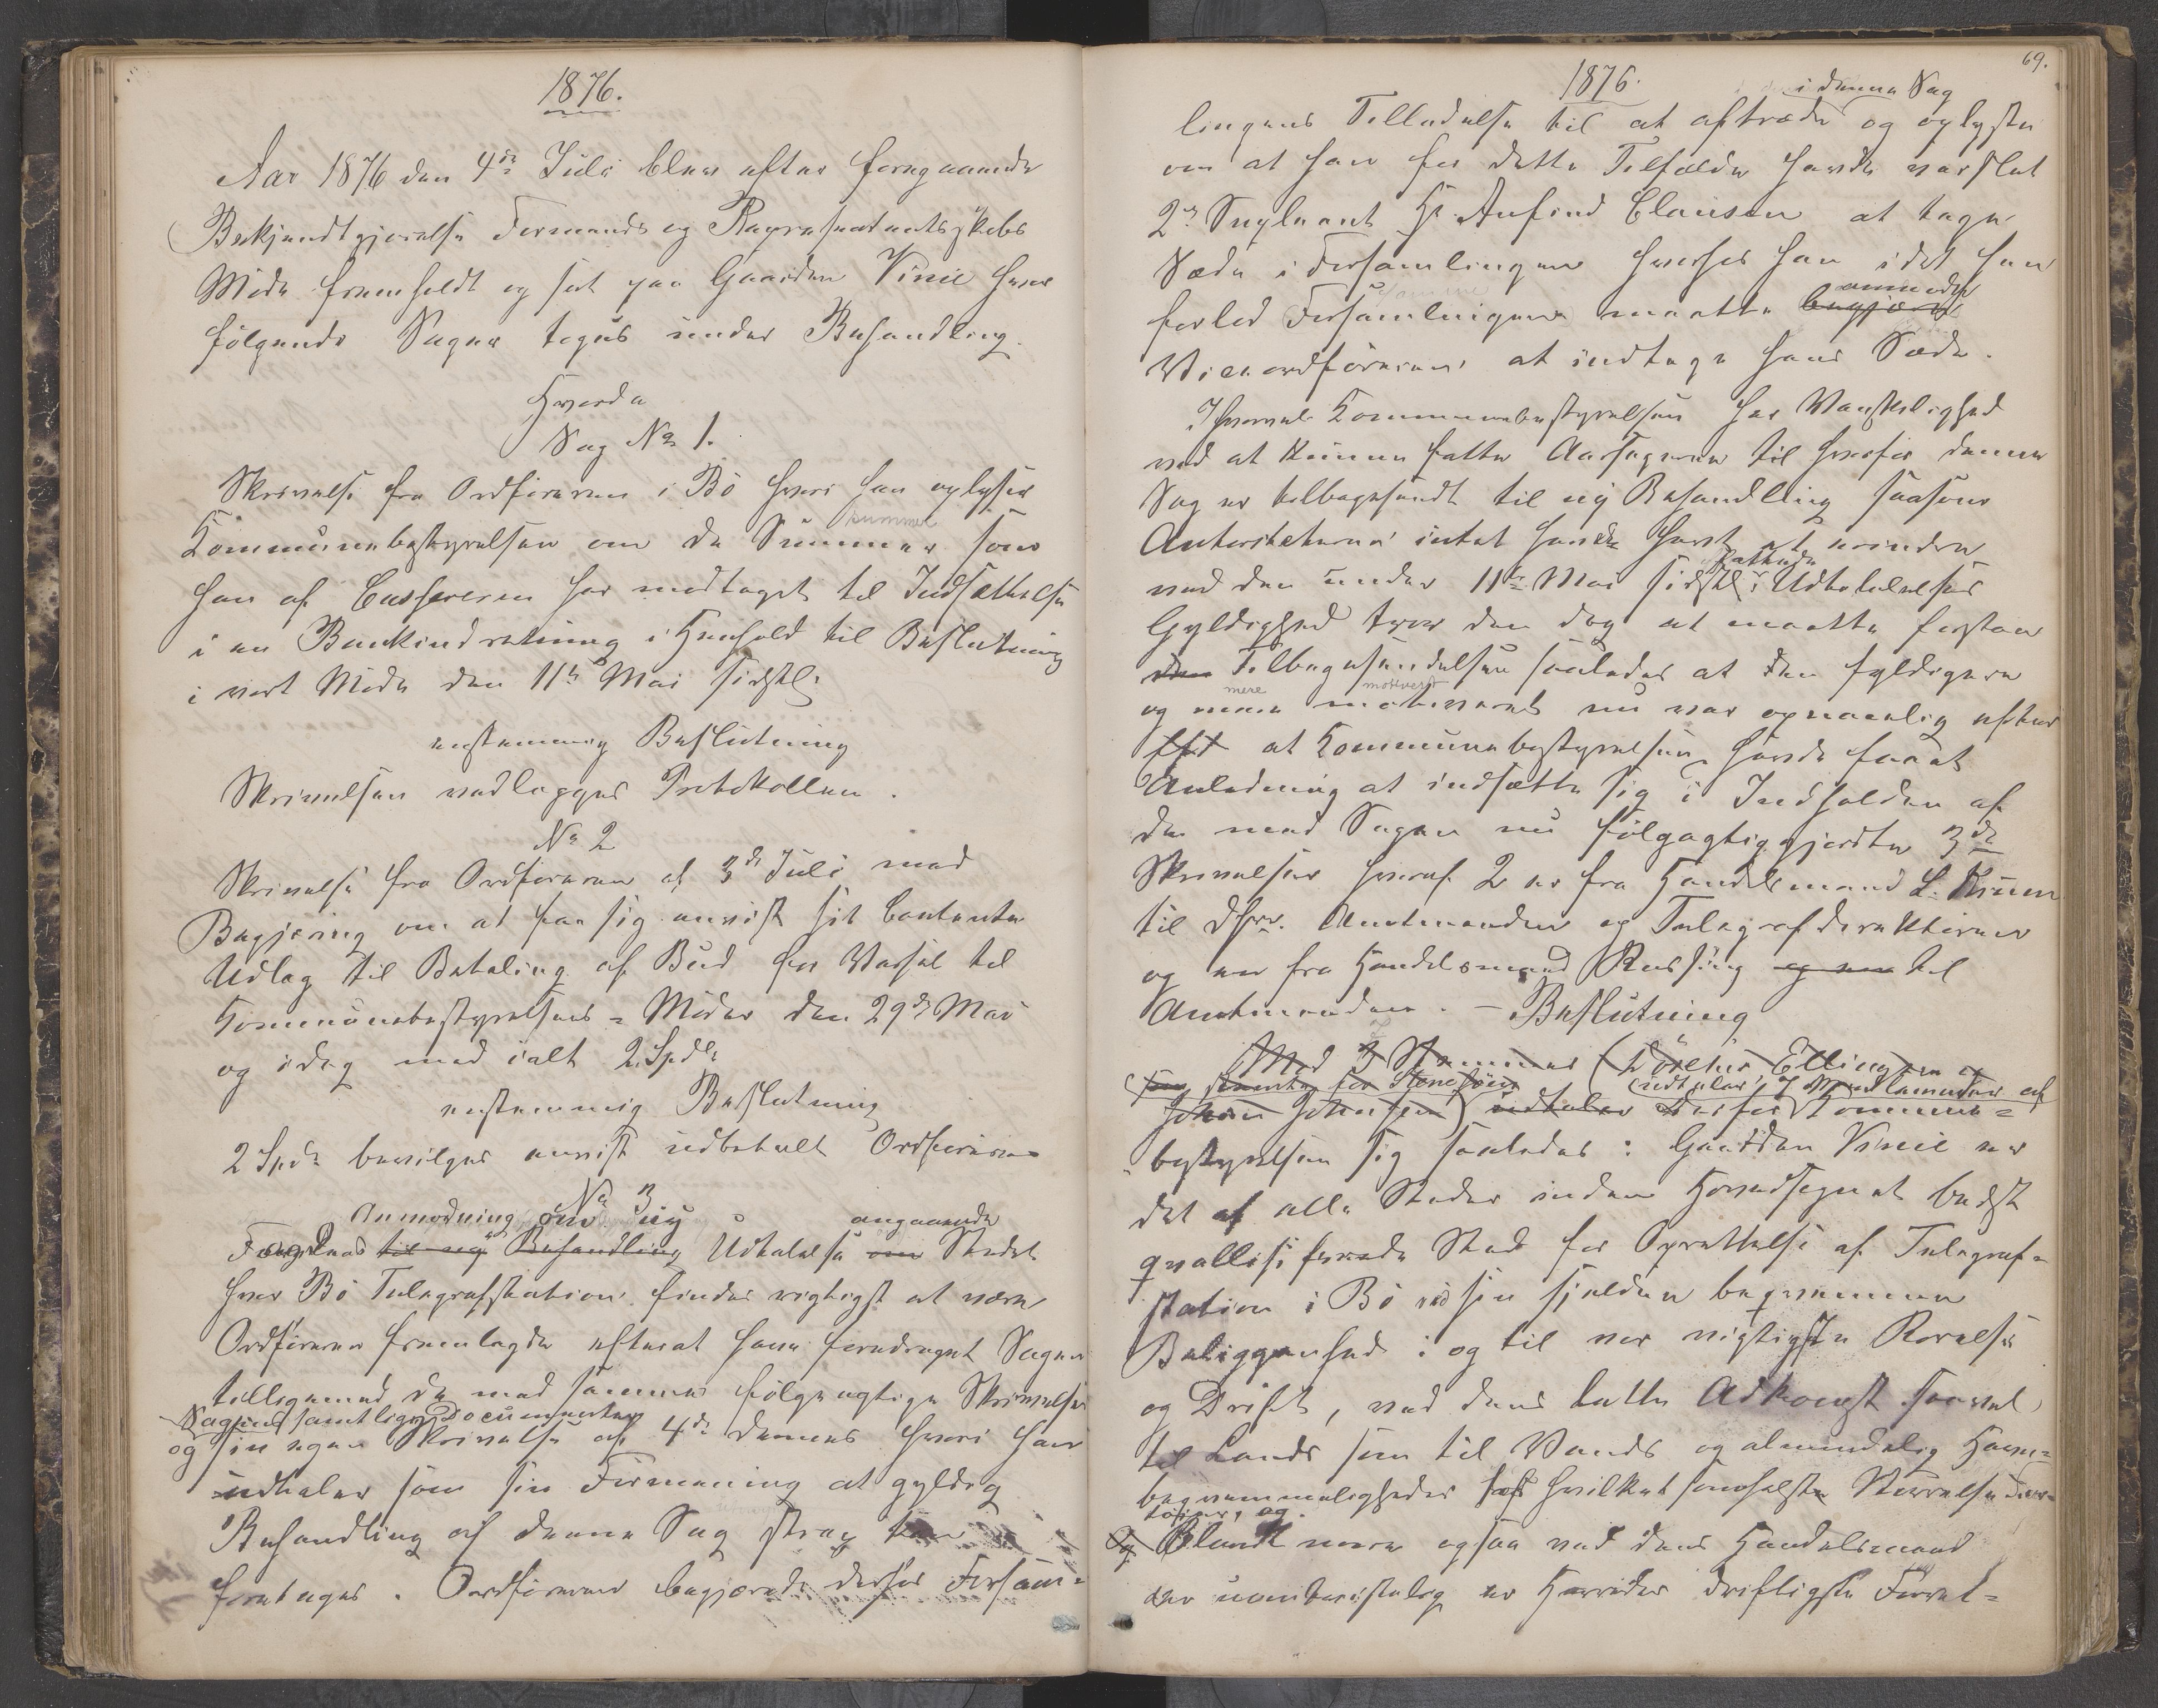 1876.
Aar 1876 den 4de Juli blev efter foregaaende
Bekjendtgjørelse Formands og Repræsentantskabs
Møde fremholdt og sat paa Gaarden Vinie hvor
følgende Sager toges under Behandling.
Hvorda
Sag No 1.
Skrivelse fra Ordføreren i Bö hvori han oplyser
Kommunebestyrelsen om de Summer som
han af Cassereren har modtaget til Indsættelse
i en Bankindretning i Henhold til Beslutning
i vort Møde den 11te Mai sidstl.
enstemmig Beslutning
Skrivelsen vedlægges Protokollen.
No 2
Skrivelse fra Ordføreren af 3de Juli med
Begjæring om at faa sig anvist sit Contante
Udlæg til Betaling af Bud for Varsel til
Kommunebestyrelsens = Møder den 29de Mai
og idag med ialt 2 Spdl.
enstemmig Beslutning
2 Spd. bevilges anvist udbetalt Ordføreren
No 3
Anmodning om ny angaaende
Fægtenes til ny Behandling Udtalelse om Stedet
hvor Bö Telegrafstation findes rigtigst at være
Ordføreren fremlagde efterat have foredraget Sagen
tilligemed de med samme følgeagtige Skrivelser
Sagens samtlige Documenter
og sin egen Skrivelse af 4de dennes hvori han
udtaler som sin Formening at gyldig
Behandling af denne Sag strax kan
foretages. Ordføreren begjærede derfor Forsam=
69.
1876. i denne Sag
lingens Tilladelse til at aftræde og oplyste
om at han for dette Tilfælde havde varslet
2n Supleant Hr. Anfind Clausen at tage
Sæde i Forsamlingen hvorfor han idet han
forlod Forsamlingen maatte begjære anmode
Viceordføreren at indtage hans Sæde.
Ihvorvel Kommunebestyrelsen har Vanskelighed
ved at kunne fatte Aarsagerne til hvorfor denne
Sag er tilbagesendt til ny Behandling saasom
Autoriteterne intet havde havt at erindre
ved den under 11te Mai sidstl. fattede Udtalelses
Gyldighed tror den dog at maatte forstaa
den Tilbagesendelsen saaledes at den fyldigere
mere motiveret
og mere motiveret nu var opnaaelig efter
at Kommunebestyrelsen havde faaet
Anledning at indsætte sig i Indholdet af
de med Sagen nu følgagtiggjordte 3de
Skrivelser hvoraf 2 er fra Handelsmand L.
til Dhrr. Amtmanden og Telegrafdirektøren
og en fra Handelsmand og en til
Amtmanden. – Beslutning
Med 3 Stemmer ( Ellingsen og
udtaler 7 Medlemmer af
Johan Johnsen) udtaler derfor Kommune=
bestyrelsen sig saaledes: Gaarden Vinie er
det af alle Steder inden Hovedsognet bedst
qvallificerede Sted for Oprettelse af Telegraf=
station i Bö ved sin sjelden beqvemme
Beliggenhed i og til vor vigtigste Rørelse
og Drift, ved dens lette Adkomst saavel
til Lands som til Vands og almindelig Havne=
beqvemmeligheder for hvilketsomhelst Størrelse Far=
tøier, og
Og Blandt mere ogsaa ved dens Handelsmand
der uomtvistelig er Herredets driftigste Forret=